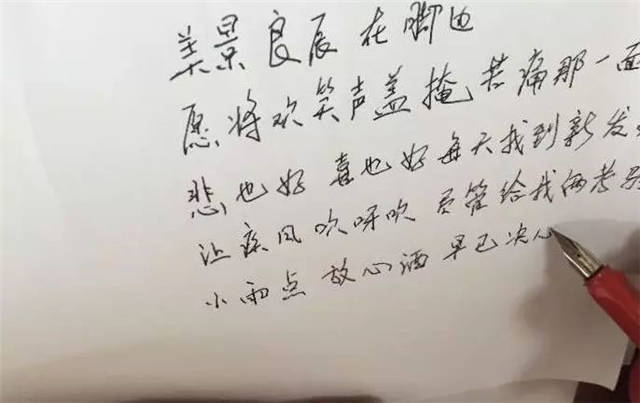 美景良辰在脚边
愿将欢笑声盖掩苦痛那一面
悲也好 喜也好 每天找到新发
让疾风吹呀吹 尽管给我俩考
小雨点 放心洒 早已决心